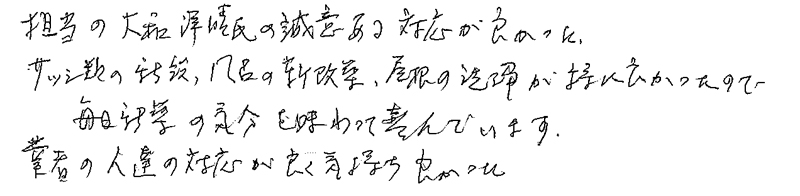 担当の大和 澤晴氏の誠意ある対応が良かった。
サッシ類の新設、風呂の新改築、屋根の塗障が特に良かったので
毎日新築の気分を味わって喜んでいます。
業者の人達の対応が良く気持ち良かった